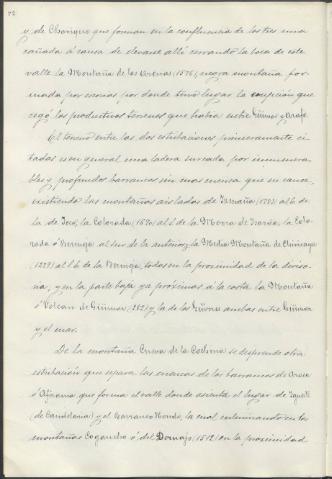 y de Chorique que forman en la confluencia de los tres una
cañada á causa de elevarse allí cerrando la boca de este
valle la Montaña de las Arenas (1576), negra montaña for-
mada por escorias por donde tuvo lugar la erupción que
cegó los productivos terrenos que había entre Güimar y Arafo.
El terreno entre las dos estribaciones primeramente ci-
tadas es en general una ladera surcada por innumera-
bles y profundos barrancos sin mas cuenca que su cauce,
existiendo las montañas aisladas de (1793) al S. de
la de Joco, la Colorada al S. de la Morra de Izaña, la Colo-
rada ó Bermeja al sur de la anterior y la Media Montaña de Chiniaga
(2277) al S. de la Bermeja, todas en la proximidad de la diviso-
ria, y en la parte baja ya próximos á la costa la Montaña
ó Volcan de Güimar (282) y la de los Güirres ambas entre Güimar
y el mar.
De la montaña Cueva de la Colmena se desprende otra
estribación que separa las cuencas de los barrancos de Arafo
ó Añavino que forma el valle donde asienta el lugar de Igueste
(de Candelaria) y el Barranco Hondo, la cual culminando en la
montañas ó del Dornajo (1512) en la proximidad